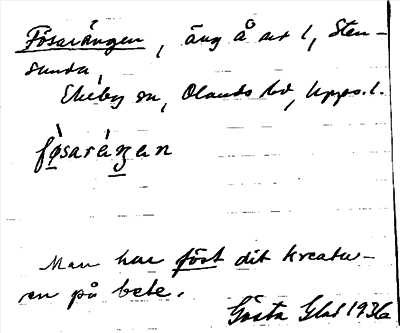 Fösarängen, äng å nr 1, Sten-
sunda,
Ekeby sn, Olands hd, Upps. l.
fø̀saráŋan
Man har föst dit kreatu-
ren på bete.
Gösta Glad 1936